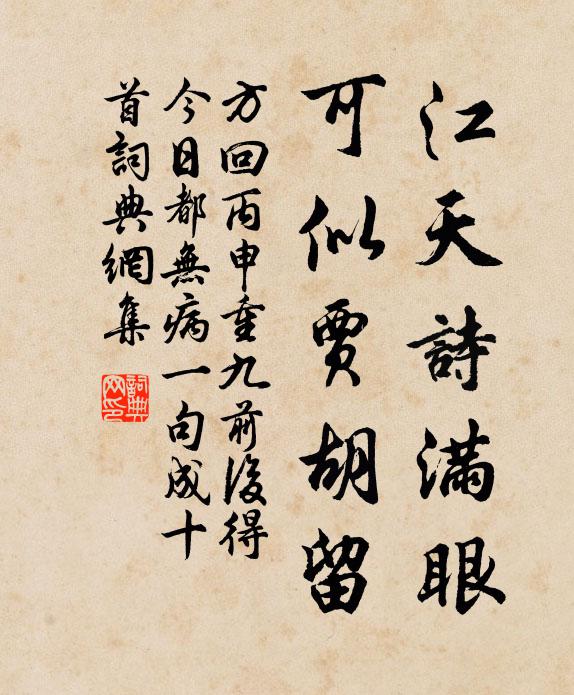 江天詩滿眼
可似賈胡留
方回丙申重九前後得
今日都無病一句成十
首詞典網集
詞典
网印